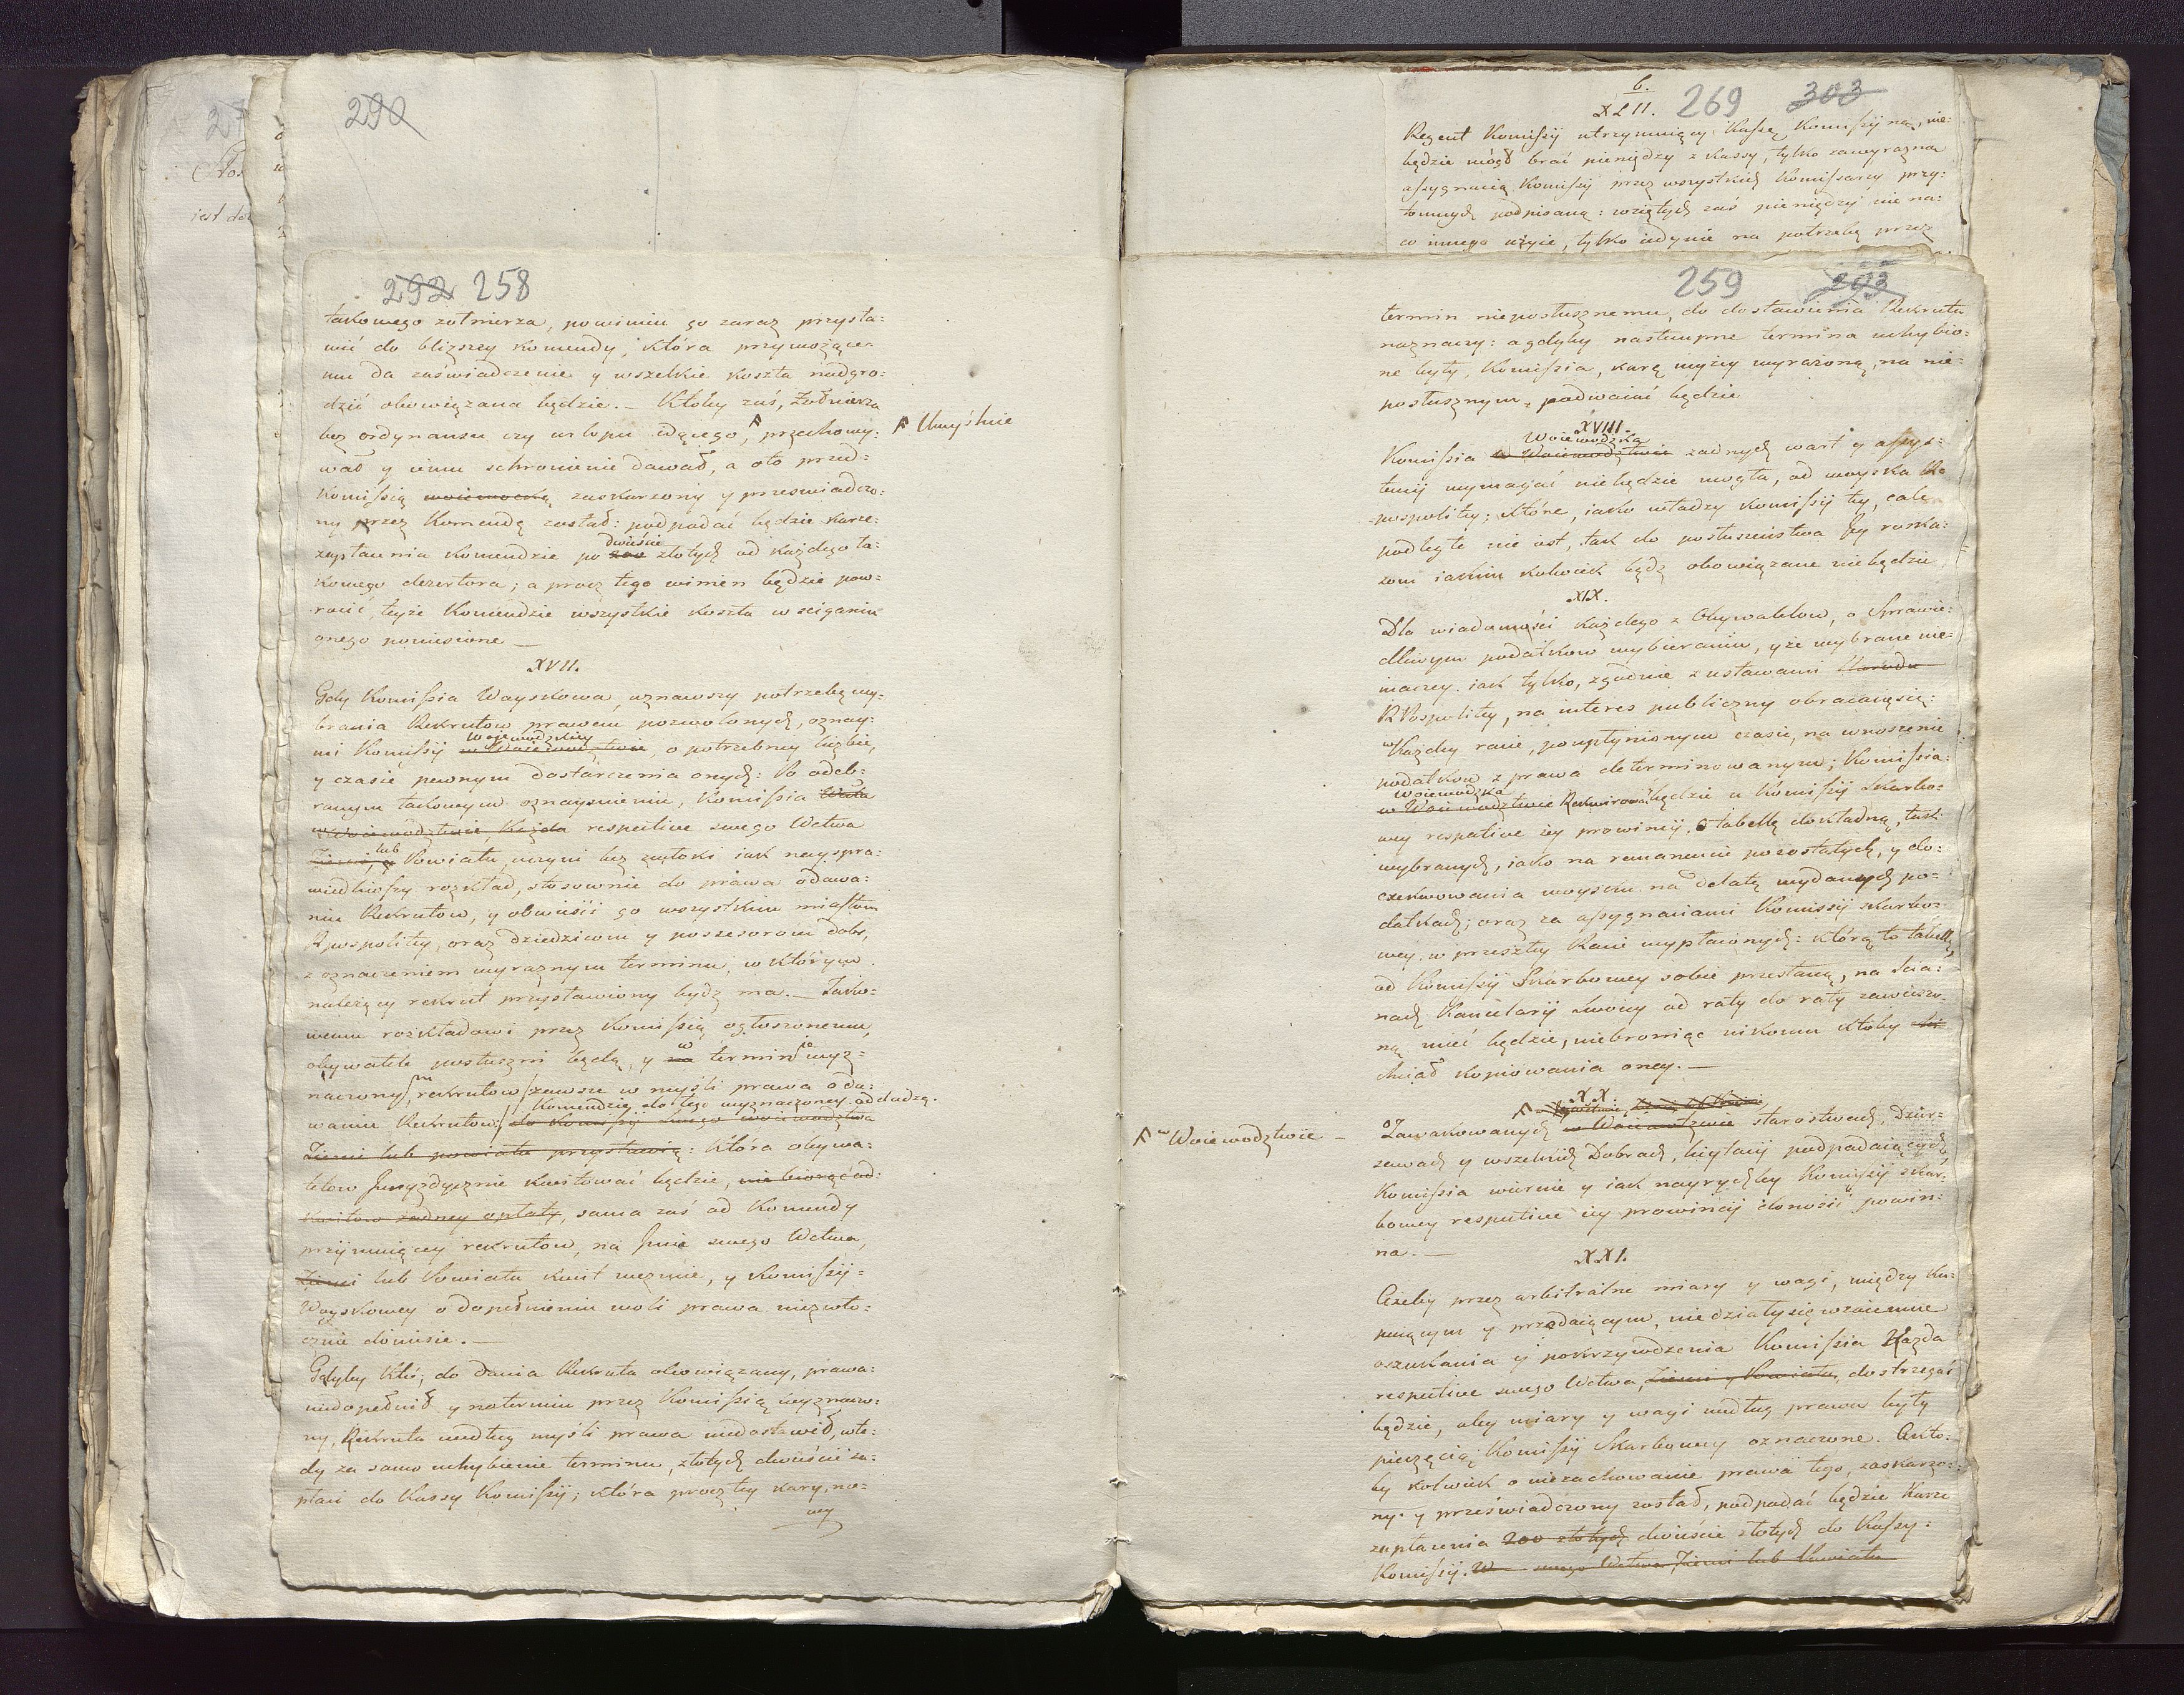 290
292 258
takowego zołnierza, powinien go zaraz przysta:
wić do bliższey komendy, która przywożące
mu da zaświadczenie y wszelkie koszta nadgro:
dzić obowiązana będzie. — Ktoby zaś, Żołnierza
bez ordynansu czy urlopu idącego, ^ przechowy:
^ Umyślnie
wał y iemu schronienie dawał, a oto przed
Komissią zaskarzony y przeswiadczo:
ny przez Komendę został: podpadać będzie karze:
dwieście
zapłacenia Komendzie po 200 złotych od każdego ta:
kowego dezertora; a procz tego winien będzie pow:
rocić teyże Komendzie wszystkie koszta w sciganiu
onego poniesione —
XVII.
Gdy Komissia Woyskowa, uznawszy potrzebę wy:
brania Rekrutow prawem pozwolonych, oznay:
Wojewodzkiey
mi Komissij w Woiewodztwie, o potrzebney liczbie,
y czasie pewnym dostarczenia onych: Po odeb:
ranym takowym oznaymieniu, Komissia
w Woiewodztwie, Każda respective swego Wctwa
lub
Ziemi, y Powiatu, uczyni bez zwłoki iak nayspra:
wiedliwszy rozkład, stosownie do prawa o dawa:
niu Rekrutow, y obwieści go wszystkim miastom
Rzpospolitey, oraz dziedzicom y possessorom dobr,
z oznaczeniem wyraznym terminu, w którym
należący rekrut przystawiony bydz ma. — Tako:
wemu rozkładowi przez Komissią ogłoszonemu,
w
obywatele posłuszni będą, y na termin wyz:
naczony, rekrutow / zawsze w myśli prawa o da:
Komendzie do tego wyznaczoney oddadzą.
waniu Rekrutow / do Komissij swego woiewodztwa
Ziemi lub powiatu przystawią: która obywa:
telow kwitować będzie, nie biorąc od
kwitow żadney opłaty, sama zaś od Komendy
przyimuiącey rekrutow, na Imie swego Wctwa,
Ziemi lub Powiatu kwit weźmie, y Komissij
Woyskowey o dopełnieniu woli prawa niezwło:
cznie doniesie. —
Gdyby Kto, do dania Rekruta obowiązany, prawa:
niedopełnił y na termin przez Komissią wyznaczo:
ny, Rekruta według myśli prawa niedostawił, wte:
dy za samo uchybienie terminu, złotych dwieście za:
płaci do Kassy Komissij; która procz tey kary, no:
wy
6.
XLII. 269 303
Regent Komissij utrzymuiący Kassę Komissijną, nie:
będzie mógł brać pieniędzy z Kassy, tylko za wyrazną
assygnacią Komissij przez wszystkich Komissarzy przy:
tomnych podpisaną: wziętych zaś pieniędzy nie na:
co innego użyie, tylko iedynie na potrzebę przez
259 293
termin nieposłusznemu, do dostawienia Rekruta
naznaczy: a gdyby nastempne termina uchybio:
ne były, Komissia, karę wyżey wyrażoną, na nie:
posłusznym podwaiać będzie
XVIII.
Woiewodzka
Komissia w Woiewodztwie żadnych wart y assys:
tencij wymagać niebędzie mogła, od woyska Rze
pospolitey; które, iako władzy Komissij tey, całe
podległe nie iest, tak do posłuszeństwa Jey rozka:
zom iakim kolwiek bądz obowiązane niebędzie
XIX.
Dla wiadomości każdego z Obywatelow, o Sprawie:
dliwym podatkow wybieraniu, y że wybrane nie:
inaczey iak tylko, zgodnie z ustawami Narodu
RPospolitey, na interes publiczny obracaią się:
w Każdey racie, po upłynionym czasie, na wnoszenie
podatkow z prawa determinowanym; Komissia
Woiewodzka
w Woiewodztwie Rekwirować będzie u Komissij Skarbo:
wey respective iey prowincij, o tabellę dokładną, tak
wybranych, iako na remanencie pozostałych, y do:
exekwowania woysku na delatę wydanych po:
datkach; oraz za assygnaciami Komissij skarbo:
wey, w przeszłey Racie wypłaconych: którą to tabellę
od Komissij Skarbowey sobie przesłaną, na scia:
nach Kancellarij swoiey od raty do raty zawieszo:
ną mieć będzie, niebroniąc nikomu ktoby
chciał kopiowania oney. —
XX.
^ w Woiewodztwie —
O Zawakowanych w Woiewodztwie starostwach, Dzier:
żawach y wszelkich Dobrach, licytacij podpadaiących,
Komissia wiernie y iak nayrychley Komissij skar:
bowey respective iey prowincij donosić powin:
na. —
XXI.
Ażeby przez arbitralne miary y wagi, między ku:
puiącym y przedaiącym, niedziały się wzaiemne
oszukania y pokrzywdzenia Komissia Każda
respective swego Wctwa, Ziemi y Powiatu, dostrzegać
będzie, aby miary y wagi według prawa były
pieczęcią Komissij Skarbowey oznaczone. A kto:
by kolwiek o niezachowanie prawa tego, zaskarzo:
ny y przeświadczony został, podpadać będzie Karze
zapłacenia 200 złotych dwieście złotych do Kassy
Komissij. W swego Wctwa, Ziemi lub Powiatu